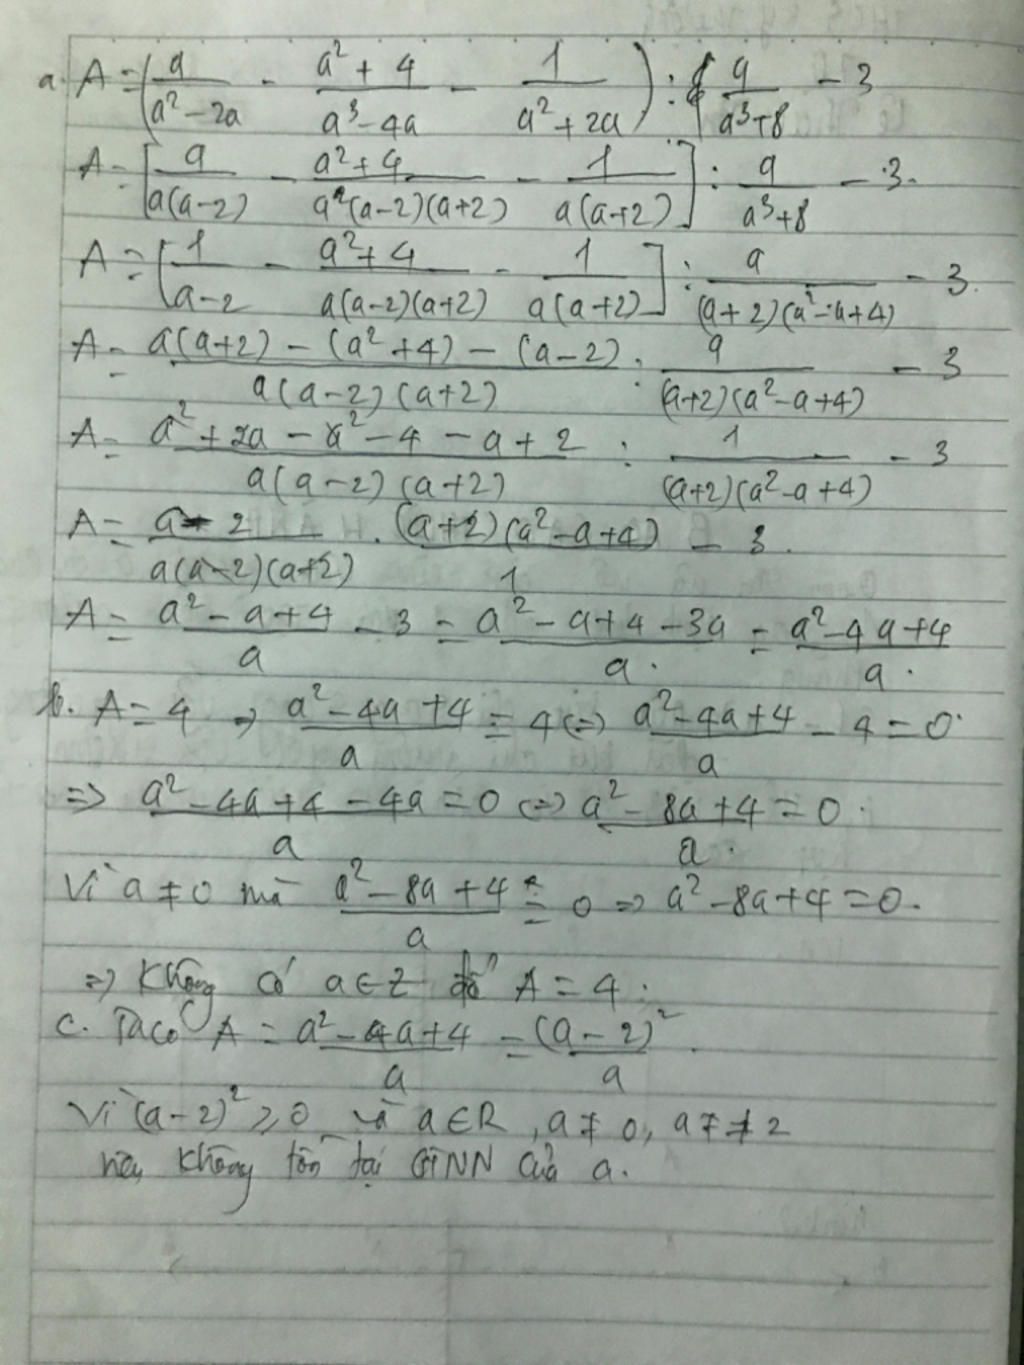 a. A = (a/(a² - 2a) - (a² + 4)/(a³ - 4a) - 1/(a² + 2a)) : a/(a³ + 8) - 3
A = [a/(a(a-2)) - (a² + 4)/(a(a-2)(a+2)) - 1/(a(a+2))] : a/(a³+8) - 3.
A = [1/(a-2) - (a² + 4)/(a(a-2)(a+2)) - 1/(a(a+2))] : a/((a+2)(a² - a+4)) - 3.
A = (a(a+2) - (a² + 4) - (a-2))/(a(a-2)(a+2)) : a/((a+2)(a² - a+4)) - 3
A = (a² + 2a - a² - 4 - a + 2)/(a(a-2)(a+2)) : 1/((a+2)(a² - a+4)) - 3
A = (a - 2)/(a(a-2)(a+2)) . (a+2)(a² - a+4)/1 - 3.
A = (a² - a + 4)/a - 3 = (a² - a + 4 - 3a)/a. = (a² - 4a + 4)/a.
b. A = 4 => (a² - 4a + 4)/a = 4 (=) (a² - 4a + 4)/a - 4 = 0.
=> (a² - 4a + 4 - 4a)/a = 0 (=) (a² - 8a + 4)/a = 0.
Vì a ≠ 0 mà (a² - 8a + 4)/a = 0 => a² - 8a + 4 = 0.
=> Không có a ∈ Z để A = 4.
c. Ta có A = (a² - 4a + 4)/a = (a - 2)²/a.
Vì (a - 2)² ≥ 0 và a ∈ R, a ≠ 0, a ≠ ≠ 2
nên không tồn tại GTNN của a.